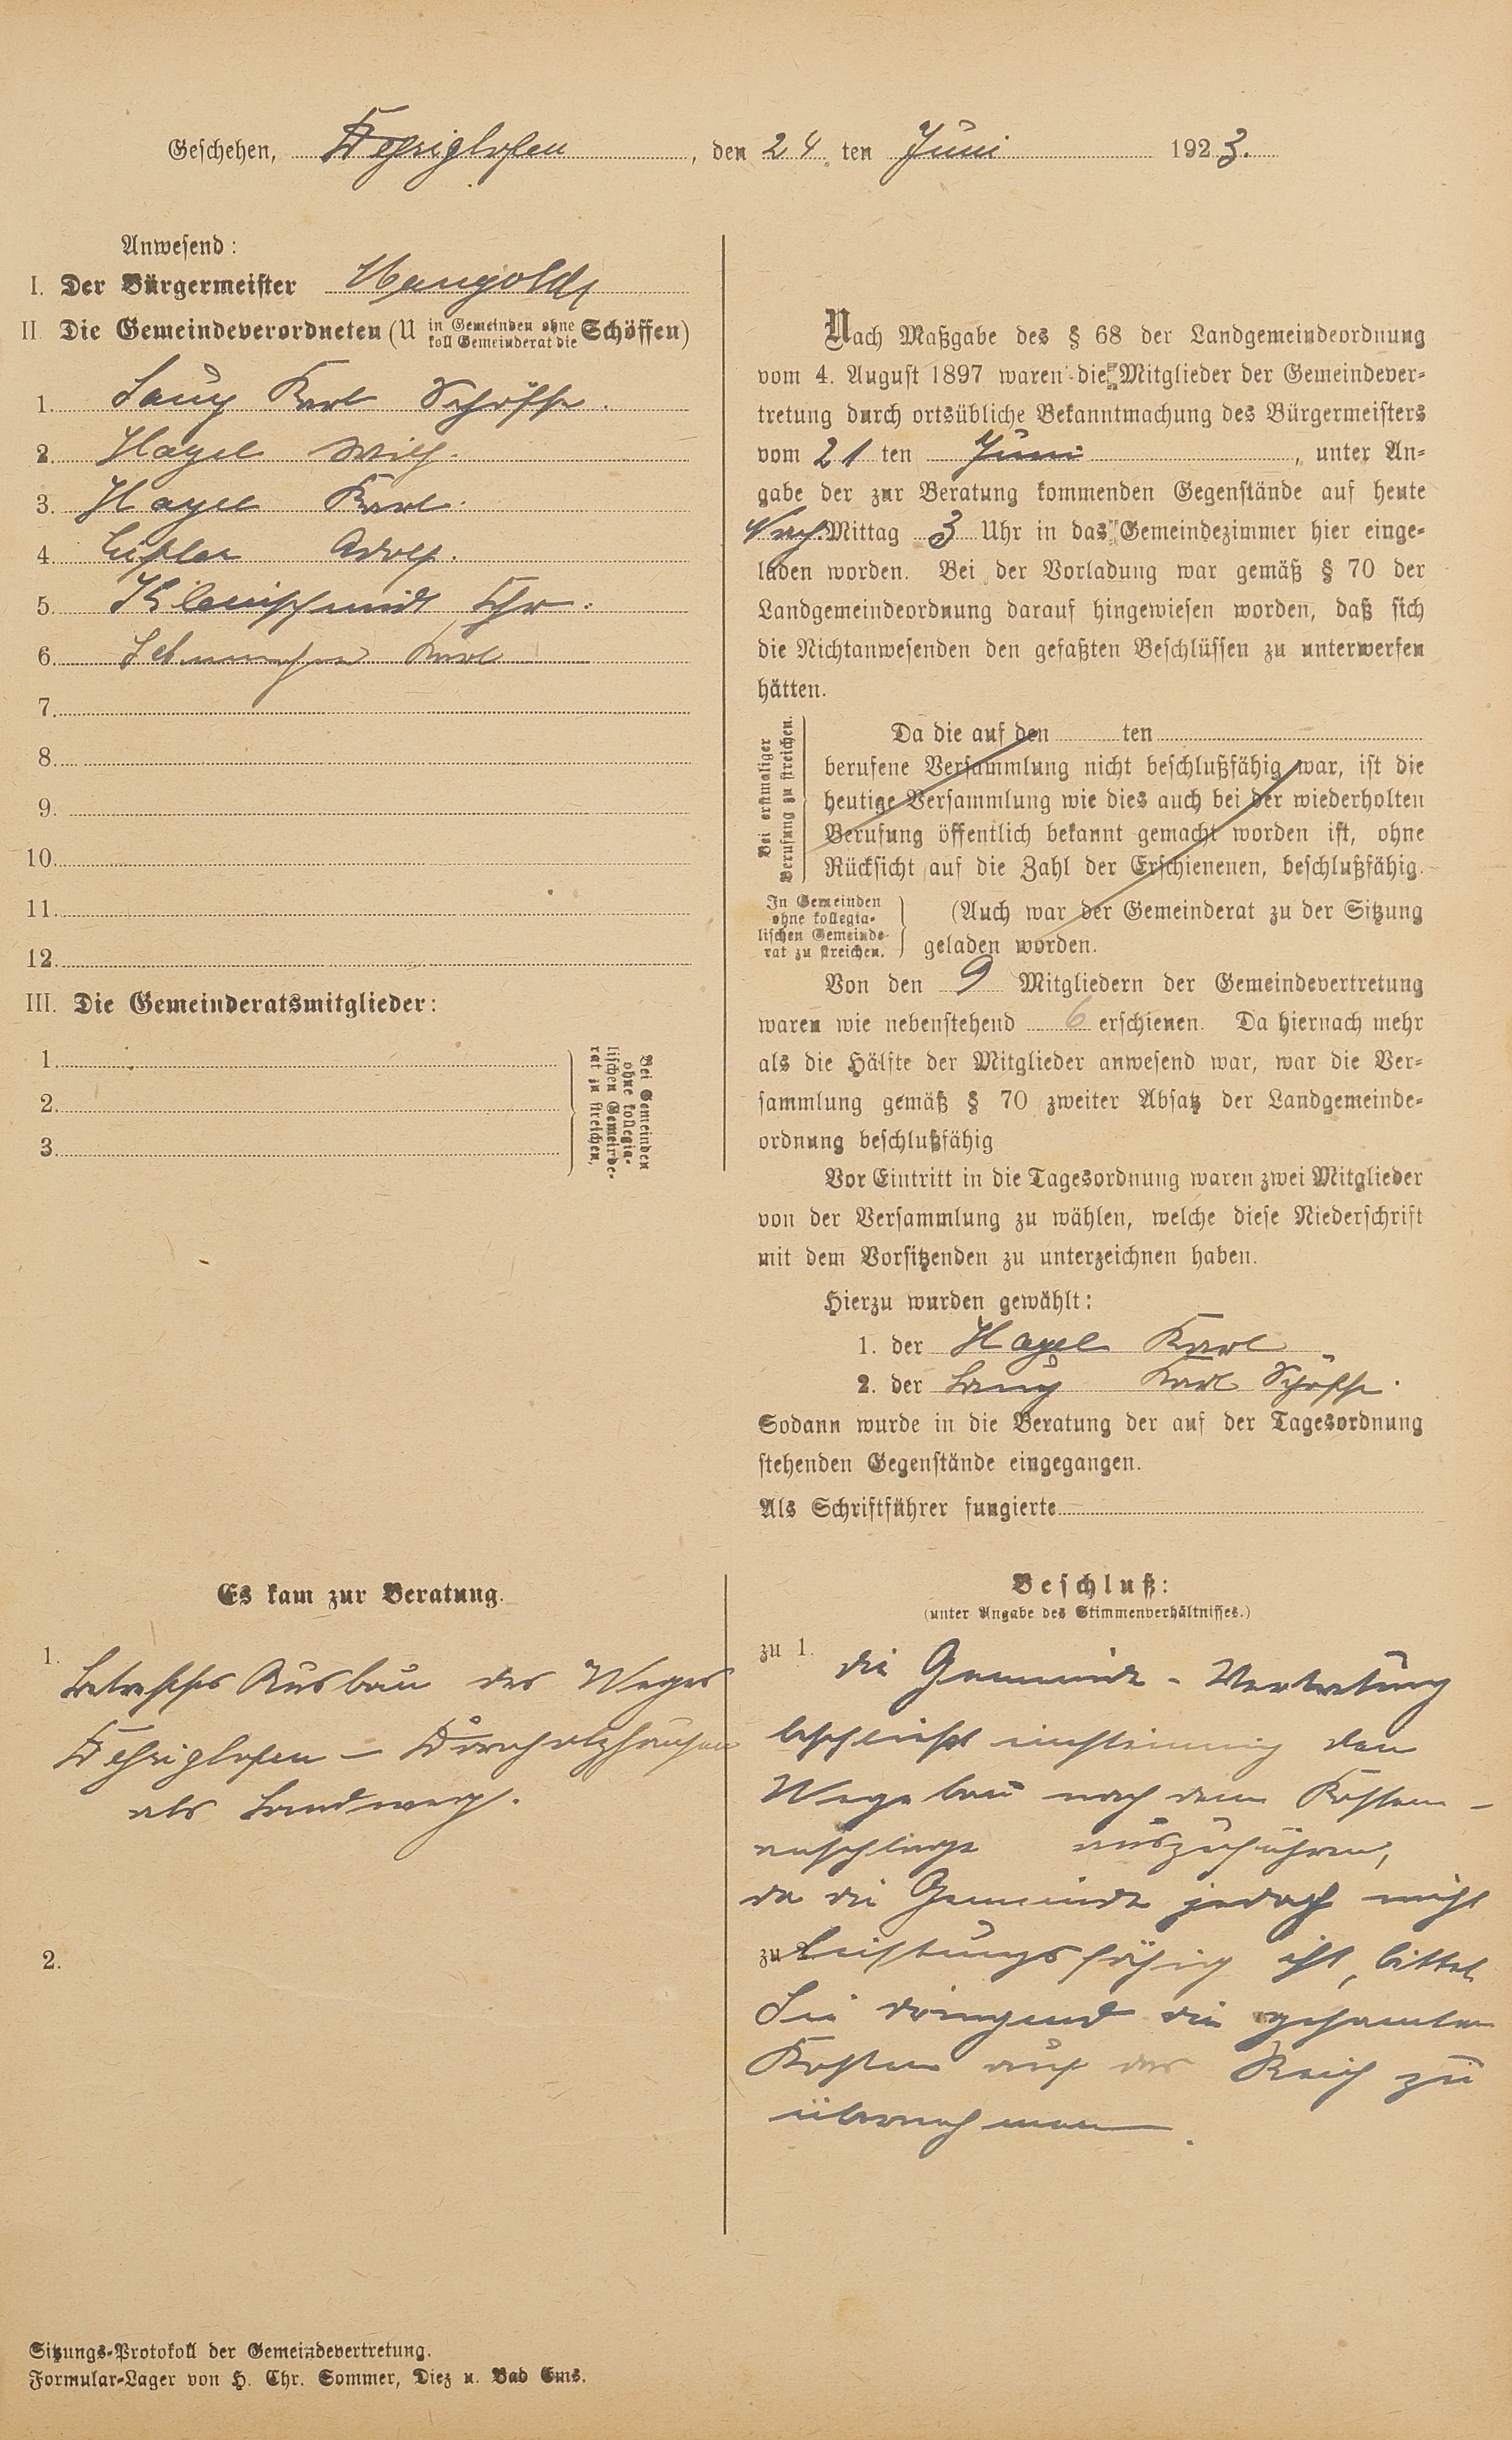 Geschehen, Dessighofen, den 24. ten Juni 1923.
Anwesend:
I. Der Bürgermeister Mangold
II. Die Gemeindeverordneten (U in Gemeinden ohne koll Gemeinderat die Schöffen)
1. Lauy Karl Schöffe.
2. Hagel Wilh.
3. Hagel Karl.
4. Adolf.
5. Kleinschmidt Chr.
6. Karl
7.
8.
9.
10.
11.
12.
III. Die Gemeinderatsmitglieder:
1.
2.
3.
Bei Gemeinden
ohne kollegia-
lischen Gemeinde-
rat zu streichen.
Nach Maßgabe des § 68 der Landgemeindeordnung
vom 4. August 1897 waren die Mitglieder der Gemeindever-
tretung durch ortsübliche Bekanntmachung des Bürgermeisters
vom 21 ten Juni, unter An-
gabe der zur Beratung kommenden Gegenstände auf heute
Nach Mittag 3 Uhr in das Gemeindezimmer hier einge-
laden worden. Bei der Vorladung war gemäß § 70 der
Landgemeindeordnung darauf hingewiesen worden, daß sich
die Nichtanwesenden den gefaßten Beschlüssen zu unterwerfen
hätten.
Bei erstmaliger
Berufung zu streichen.
Da die auf den ten
berufene Versammlung nicht beschlußfähig war, ist die
heutige Versammlung wie dies auch bei der wiederholten
Berufung öffentlich bekannt gemacht worden ist, ohne
Rücksicht auf die Zahl der Erschienenen, beschlußfähig.
In Gemeinden
ohne kollegia-
lischen Gemeinde-
rat zu streichen.
(Auch war der Gemeinderat zu der Sitzung
geladen worden.
Von den 9 Mitgliedern der Gemeindevertretung
waren wie nebenstehend 6 erschienen. Da hiernach mehr
als die Hälfte der Mitglieder anwesend war, war die Ver-
sammlung gemäß § 70 zweiter Absatz der Landgemeinde-
ordnung beschlußfähig
Vor Eintritt in die Tagesordnung waren zwei Mitglieder
von der Versammlung zu wählen, welche diese Niederschrift
mit dem Vorsitzenden zu unterzeichnen haben.
Hierzu wurden gewählt:
1. der Hagel Karl
2. der Lauy Karl Schöffe.
Sodann wurde in die Beratung der auf der Tagesordnung
stehenden Gegenstände eingegangen.
Als Schriftführer fungierte
Es kam zur Beratung.
1.
Betreffs Ausbau des Weges
Dessighofen – Dornholzhausen
als Landweg.
2.
Beschluß:
(unter Angabe des Stimmenverhältnisses.)
zu 1. die Gemeinde-Vertretung
beschließt einstimmig den
Wegebau nach dem Kosten-
anschlage auszuführen,
da die Gemeinde jedoch nicht
zu 2. leistungsfähig ist, bittet
Sie dringend die gesamten
Kosten auf das Reich zu
übernehmen.
Sitzungs-Protokoll der Gemeindevertretung.
Formular-Lager von H. Chr. Sommer, Diez u. Bad Ems.